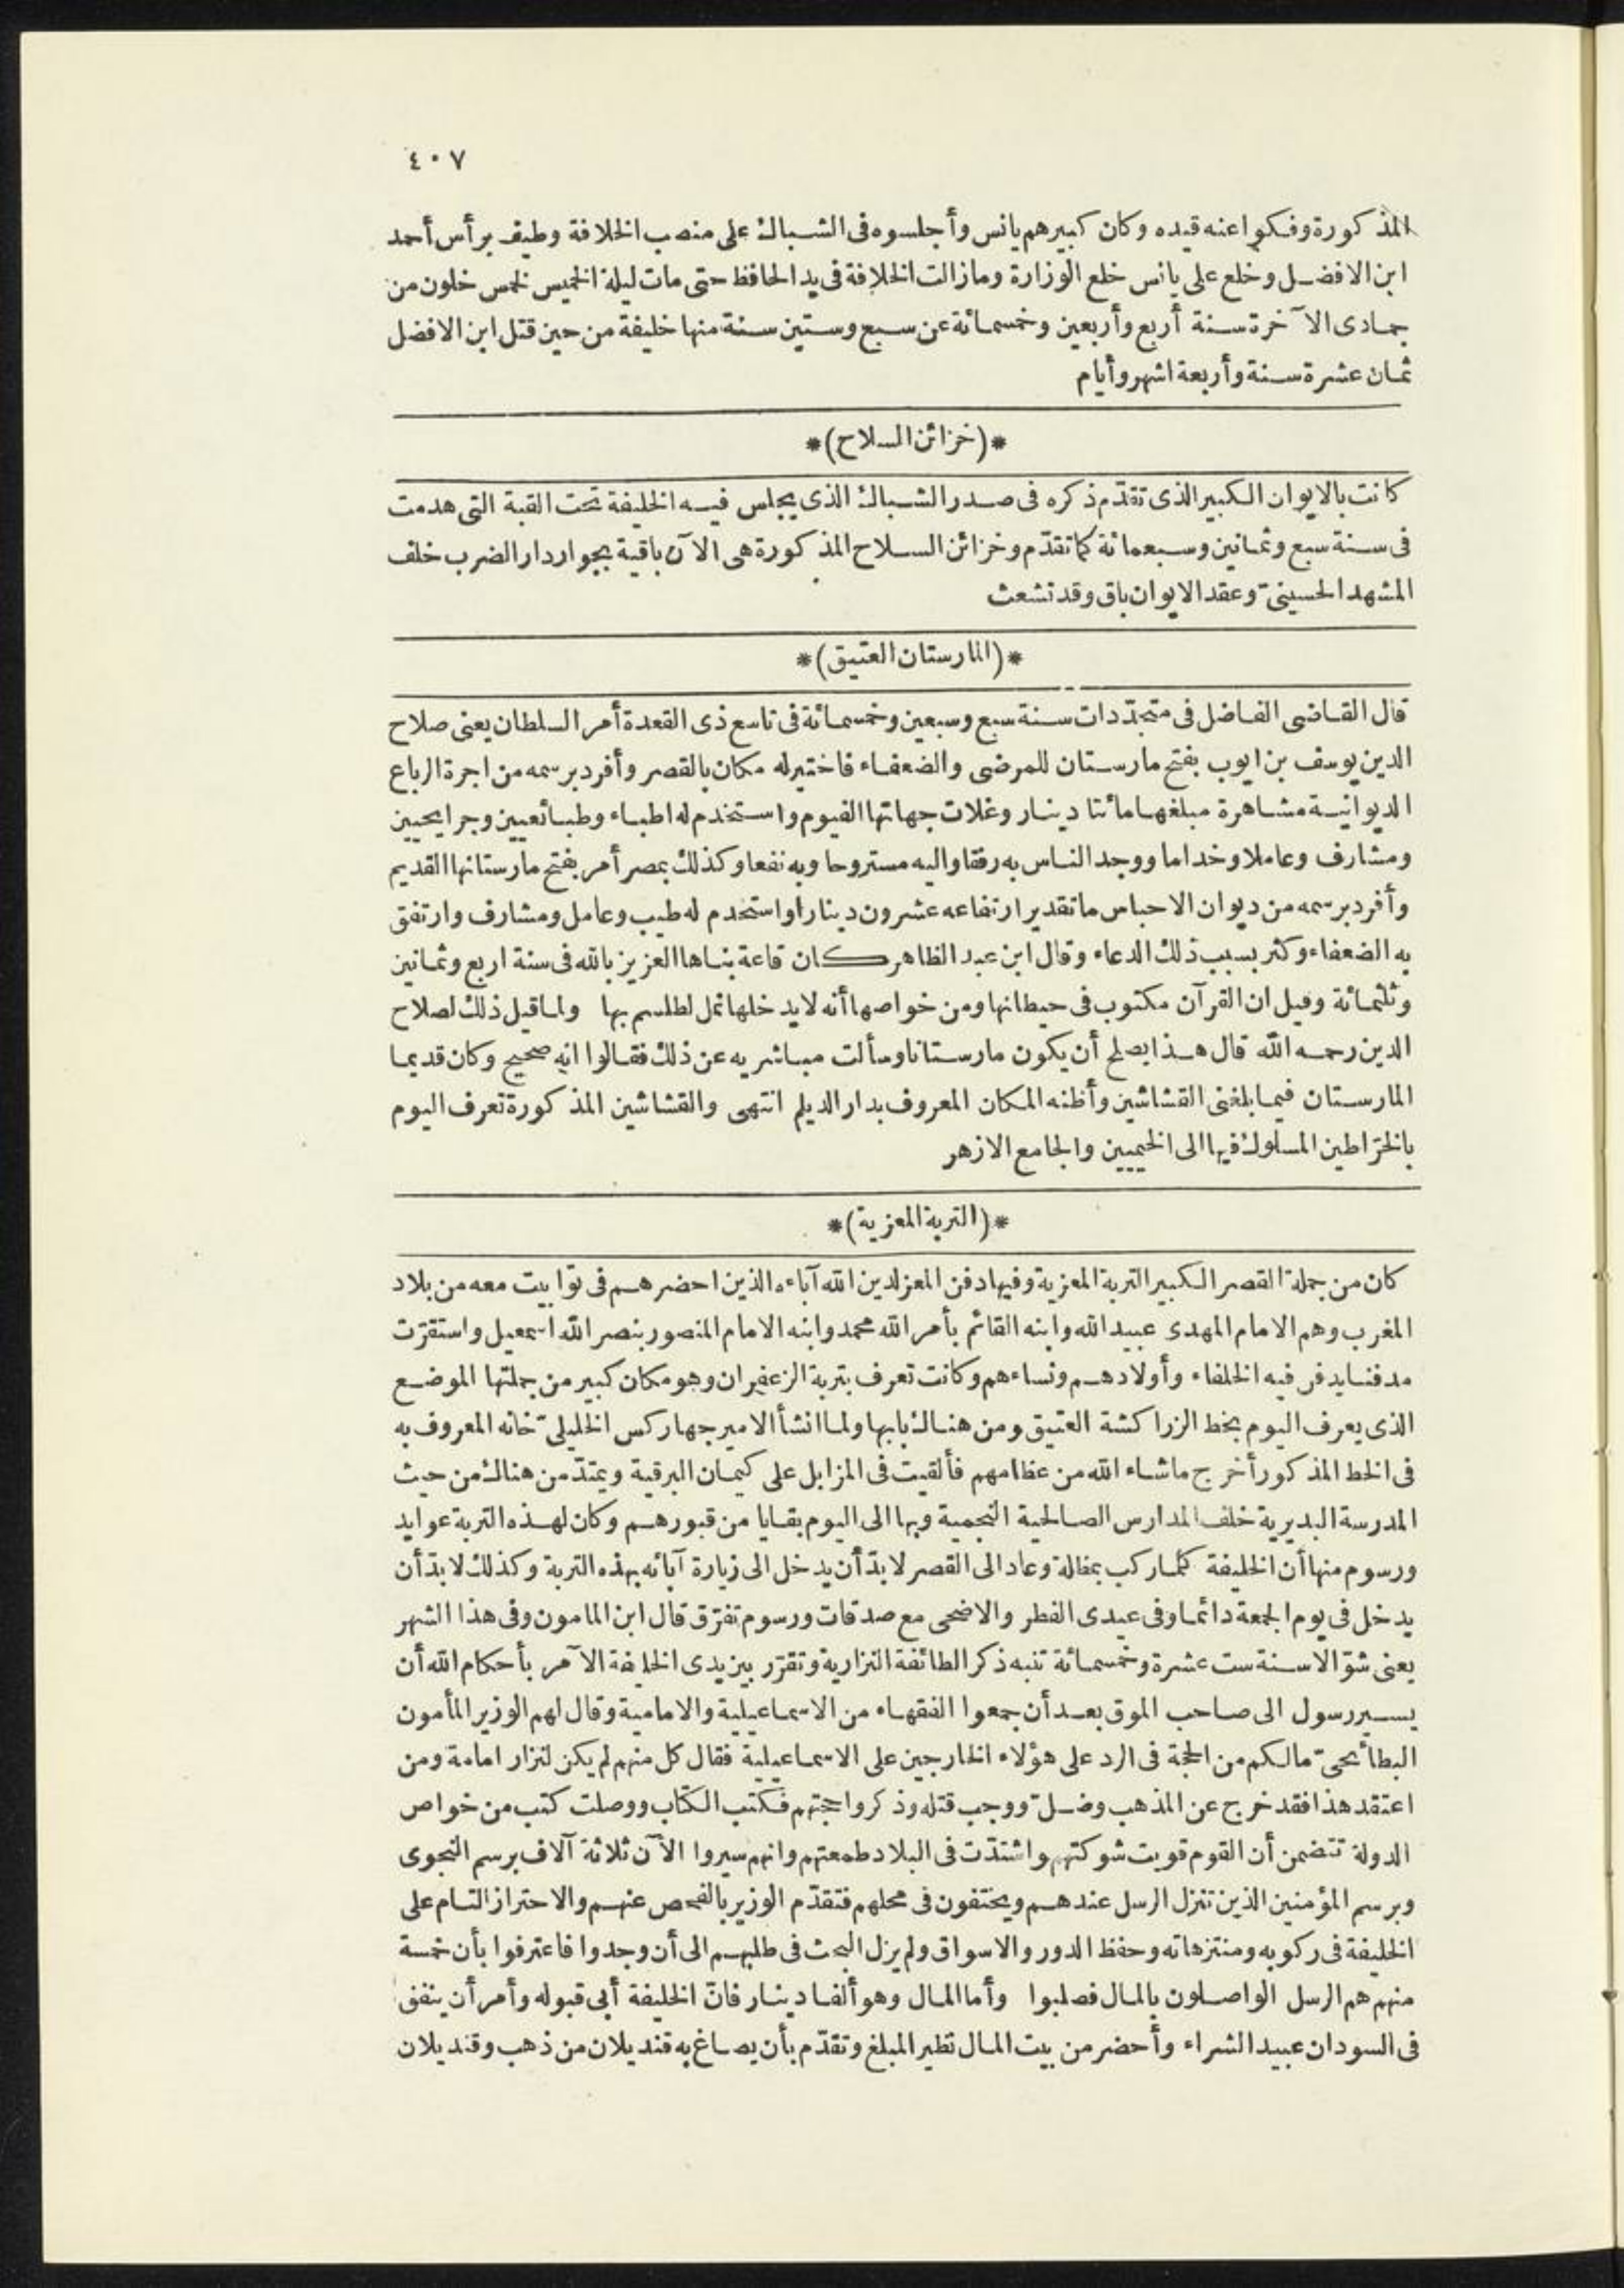 ٤٠٧
المذكورة وفكوا عنه قيده وكان كبيرهم يانس وأجلسوه فى الشباك على منصب الخلافة وطيف برأس أحمد
ابن الافضل وخلع على يانس خلع الوزارة ومازالت الخلافة فى يد الحافظ حتى مات ليلة الخميس لخمس خلون من
جمادى الآخرة سنة أربع وأربعين وخمسمائة عن سبع وستين سنة منها خليفة من حين قتل ابن الافضل
ثمان عشرة سنة وأربعة اشهر وأيام
*(خزائن السلاح)*
كانت بالايوان الكبير الذى تقدّم ذكره فى صدر الشباك الذى يجلس فيه الخليفة تحت القبة التى هدمت
فى سنة سبع وثمانين وسبعمائة كما تقدّم وخزائن السلاح المذكورة هى الآن باقية بجوار دار الضرب خلف
المشهد الحسينىّ وعقد الايوان باق وقد تشعث
*(المارستان العتيق)*
قال القاضى الفاضل فى متجدّدات سنة سبع وسبعين وخمسمائة فى تاسع ذى القعدة أمر السلطان يعنى صلاح
الدين يوسف بن ايوب بفتح مارستان للمرضى والضعفاء فاختير له مكان بالقصر وأفرد برسمه من اجرة الرباع
الديوانية مشاهرة مبلغها مائتا دينار وغلات جهاتها الفيوم واستخدم له اطباء وطبائعيين وجرايحيين
ومشارف وعاملا وخداما ووجد الناس به رفقا واليه مستروحا وبه نفعا وكذلك بمصر أمر بفتح مارستانها القديم
وأفرد برسمه من ديوان الاحباس ما تقدير ارتفاعه عشرون دينارا واستخدم له طبيب وعامل ومشارف وارتفق
به الضعفاء وكثر بسبب ذلك الدعاء وقال ابن عبد الظاهر كان قاعة بناها العزيز بالله فى سنة اربع وثمانين
وثلثمائة وقيل ان القرآن مكتوب فى حيطانها ومن خواصها أنه لا يدخلها نمل لطلسم بها ولما قيل ذلك لصلاح
الدين رحمه الله قال هذا يصلح أن يكون مارستانا وسألت مباشريه عن ذلك فقالوا انه صحيح وكان قديما
المارستان فيما بلغنى القشاشين وأظنه المكان المعروف بدار الديلم انتهى والقشاشين المذكورة تعرف اليوم
بالخرّاطين المسلوك فيها الى الخيميين والجامع الازهر
*(التربة المعزية)*
كان من جملة القصر الكبير التربة المعزية وفيها دفن المعز لدين الله آباءه الذين احضرهم فى توابيت معه من بلاد
المغرب وهم الامام المهدى عبيد الله وابنه القائم بأمر الله محمد وابنه الامام المنصور بنصر الله اسمعيل واستقرّت
مدفنا يدفن فيه الخلفاء وأولادهم ونساءهم وكانت تعرف بتربة الزعفران وهو مكان كبير من جملتها الموضع
الذى يعرف اليوم بخط الزراكشة العتيق ومن هناك بابها ولما انشأ الامير جهاركس الخليلىّ خانه المعروف به
فى الخط المذكور أخرج ماشاء الله من عظامهم فألقيت فى المزابل على كيمان البرقية ويمتدّ من هناك من حيث
المدرسة البديرية خلف المدارس الصالحية النجمية وبها الى اليوم بقايا من قبورهم وكان لهذه التربة عوايد
ورسوم منها أن الخليفة كلما ركب بمظلة وعاد الى القصر لا بدّ أن يدخل الى زيارة آبائه بهذه التربة وكذلك لا بدّ أن
يدخل فى يوم الجمعة دائما وفى عيدى الفطر والاضحى مع صدقات ورسوم تفرّق قال ابن المامون وفى هذا الشهر
يعنى شوّالا سنة ست عشرة وخمسمائة تنبه ذكر الطائفة النزارية وتقرّر بين يدى الخليفة الآمر بأحكام الله أن
يسير رسول الى صاحب الموت بعد أن جمعوا الفقهاء من الاسماعيلية والامامية وقال لهم الوزير المأمون
البطائحىّ مالكم من الحجة فى الرد على هؤلاء الخارجين على الاسماعيلية فقال كل منهم لم يكن لنزار امامة ومن
اعتقد هذا فقد خرج عن المذهب وضلّ ووجب قتله وذكروا حجتهم فكتب الكتاب ووصلت كتب من خواص
الدولة تتضمن أن القوم قويت شوكتهم واشتدّت فى البلاد طمعتهم وانهم سيروا الآن ثلاثة آلاف برسم النجوى
وبرسم المؤمنين الذين تنزل الرسل عندهم ويختفون فى محلهم فتقدّم الوزير بالفحص عنهم والاحتراز التام على
الخليفة فى ركوبه ومنتزهاته وحفظ الدور والاسواق ولم يزل البحث فى طلبهم الى أن وجدوا فاعترفوا بأن خمسة
منهم هم الرسل الواصلون بالمال فصلبوا وأما المال وهو ألفا دينار فانّ الخليفة أبى قبوله وأمر أن ينفق
فى السودان عبيد الشراء وأحضر من بيت المال نظير المبلغ وتقدّم بأن يصاغ به قنديلان من ذهب وقنديلان